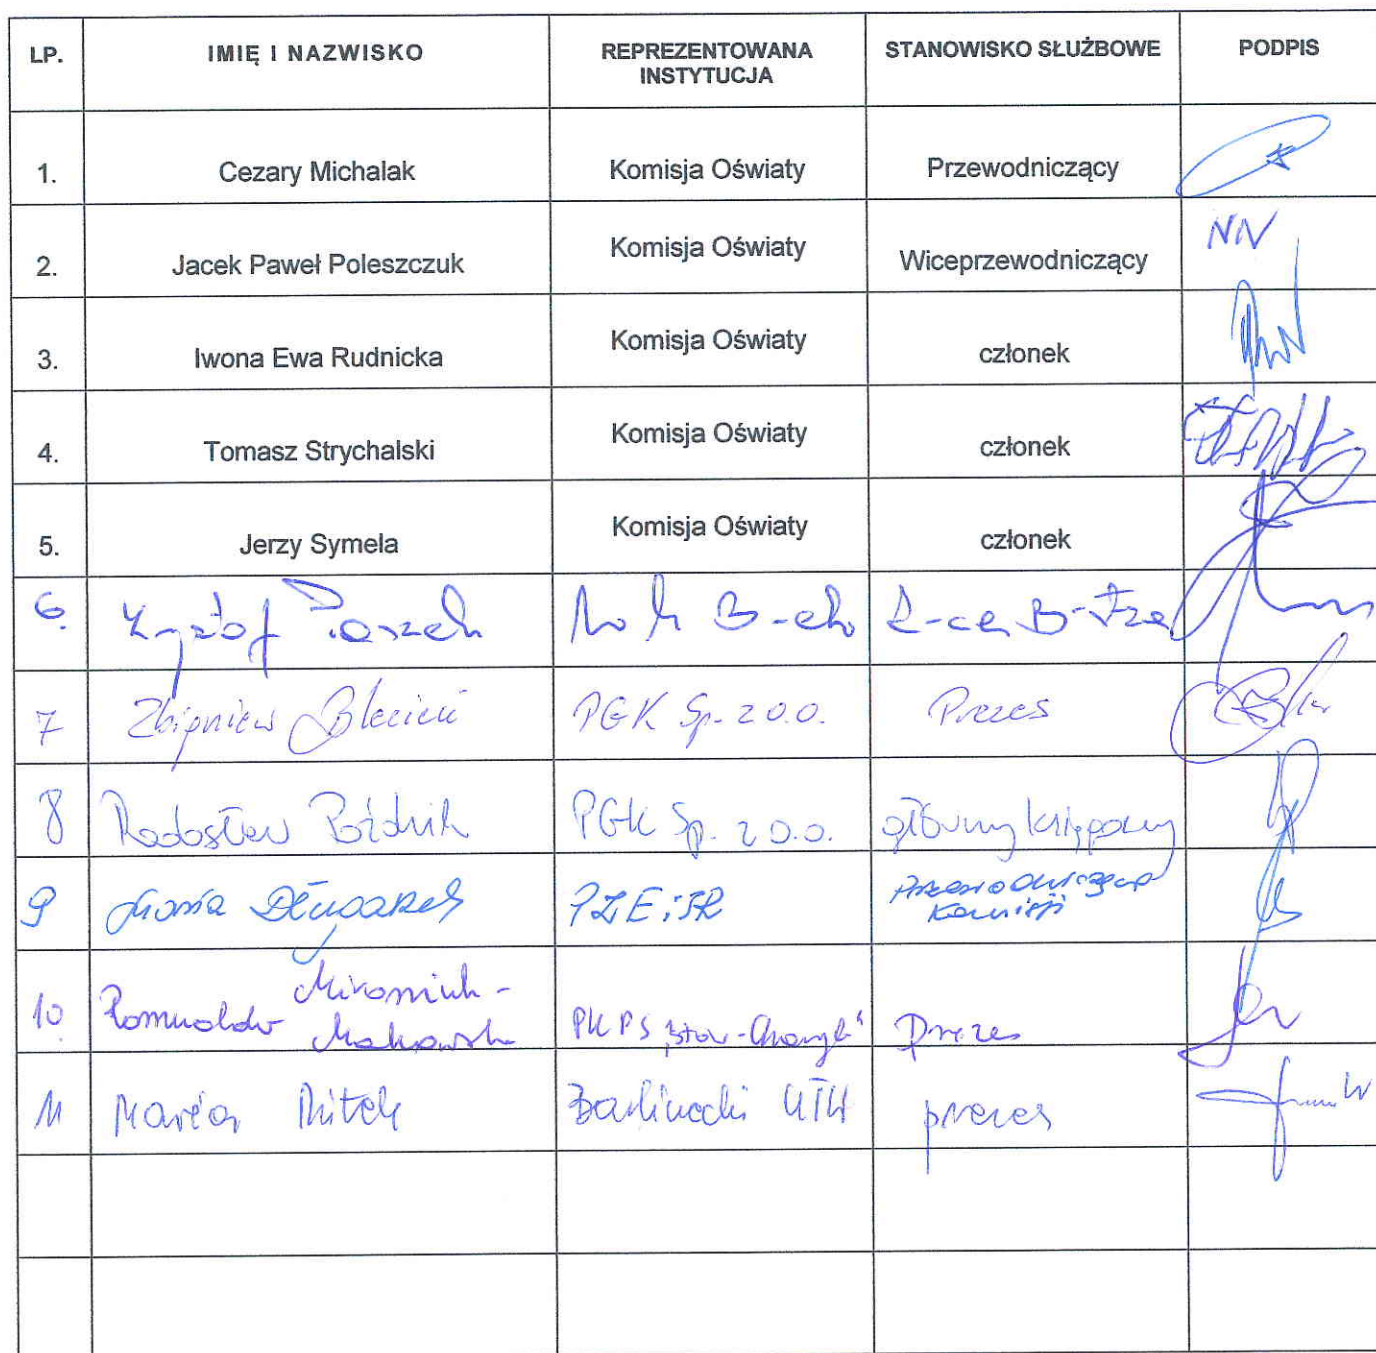 LP. IMIĘ I NAZWISKO REPREZENTOWANA INSTYTUCJA STANOWISKO SŁUŻBOWE PODPIS
1. Cezary Michalak Komisja Oświaty Przewodniczący
2. Jacek Paweł Poleszczuk Komisja Oświaty Wiceprzewodniczący NN
3. Iwona Ewa Rudnicka Komisja Oświaty członek
4. Tomasz Strychalski Komisja Oświaty członek
5. Jerzy Symela Komisja Oświaty członek
6.
7 Zbigniew PGK Sp. z o.o. Prezes
8 Radosław Poździk PGK Sp. z o.o. główny księgowy
9 PZEiIR Przewodnicząca Komisji
10. Romualda PKPS Prezes
11 Maria Mitek Barlinecki UTW prezes